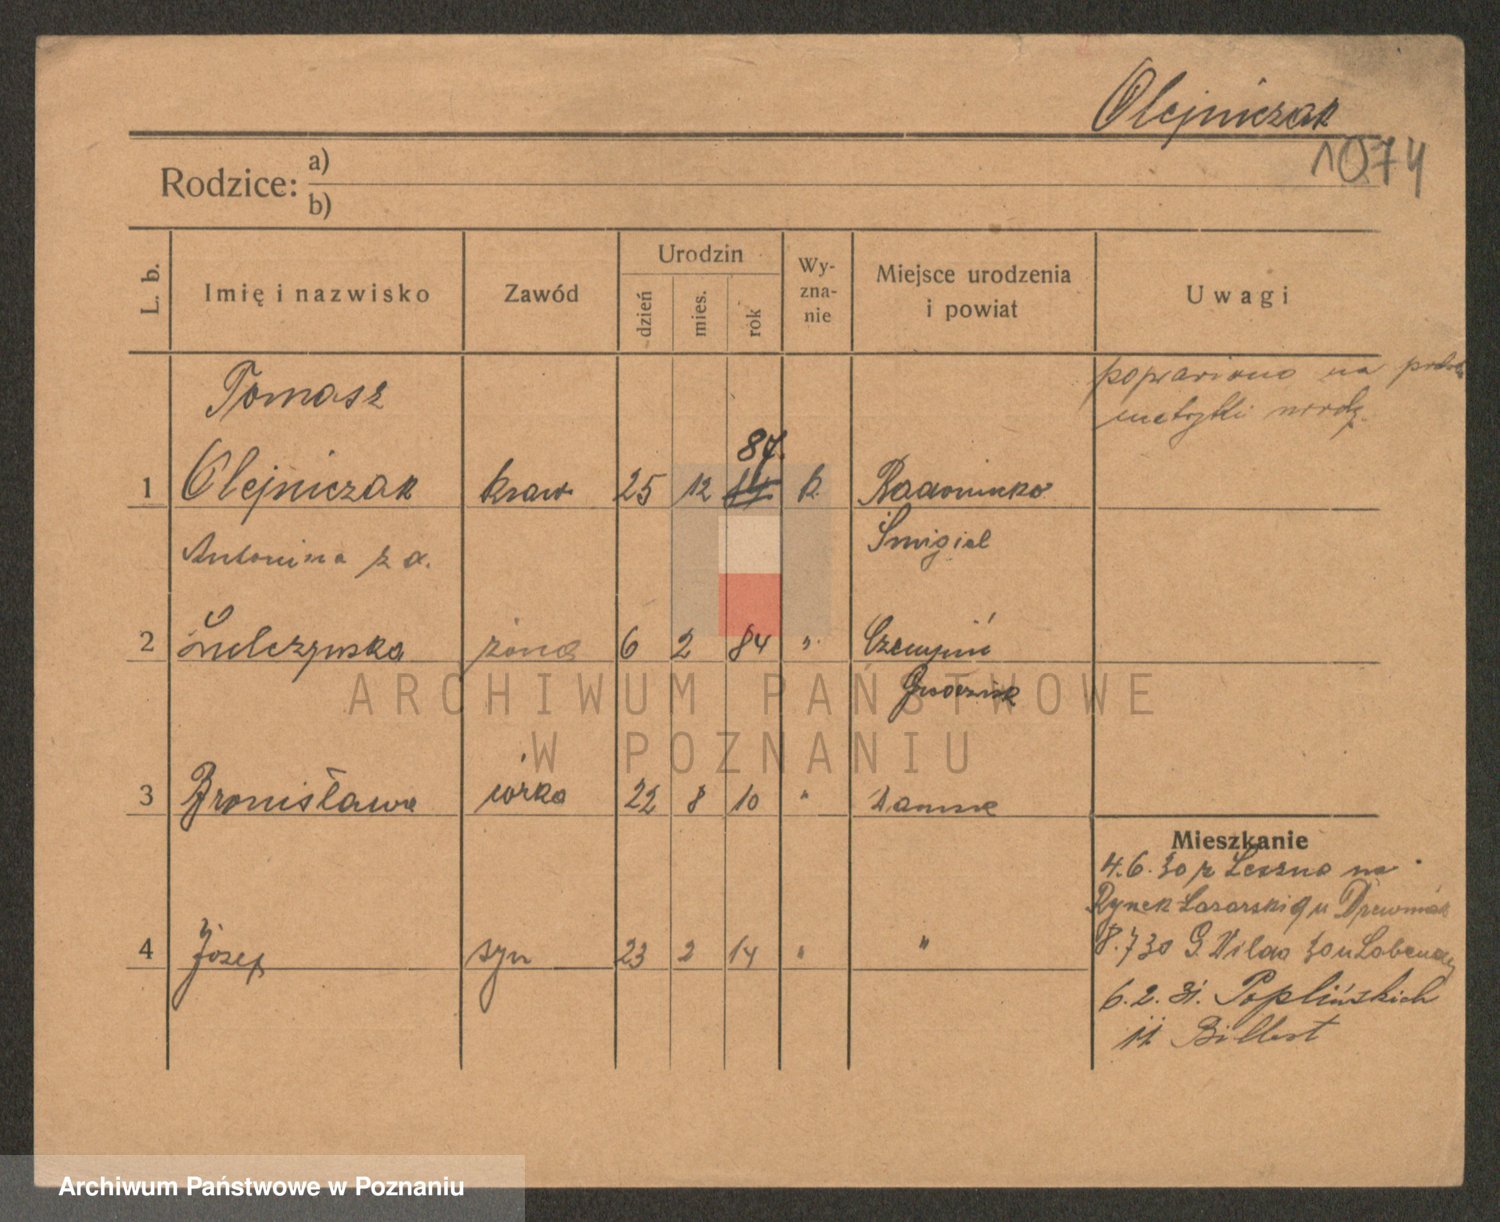 Olejniczak
1074
Rodzice: a)
b)
L. b.
Imię i nazwisko
Zawód
Urodzin
dzień
mies.
rok
Wy-
zna-
nie
Miejsce urodzenia
i powiat
Uwagi
poprawiono na
metryki
Tomasz
87.
1 Olejniczak kraw 25 12 k.
Śmigiel
Antonina z d.
2 żona 6 2 84 " Czempiń
3 Bronisława córka 22 8 10 "
4 Józef syn 23 2 14 " "
Mieszkanie
4.6.30 z Leszna na
Rynek Łazarski 9 u
8.7.30 G. Wilda 30 u
6.2.31. Poplińskich
11
ARCHIWUM PAŃSTWOWE
W POZNANIU
Archiwum Państwowe w Poznaniu